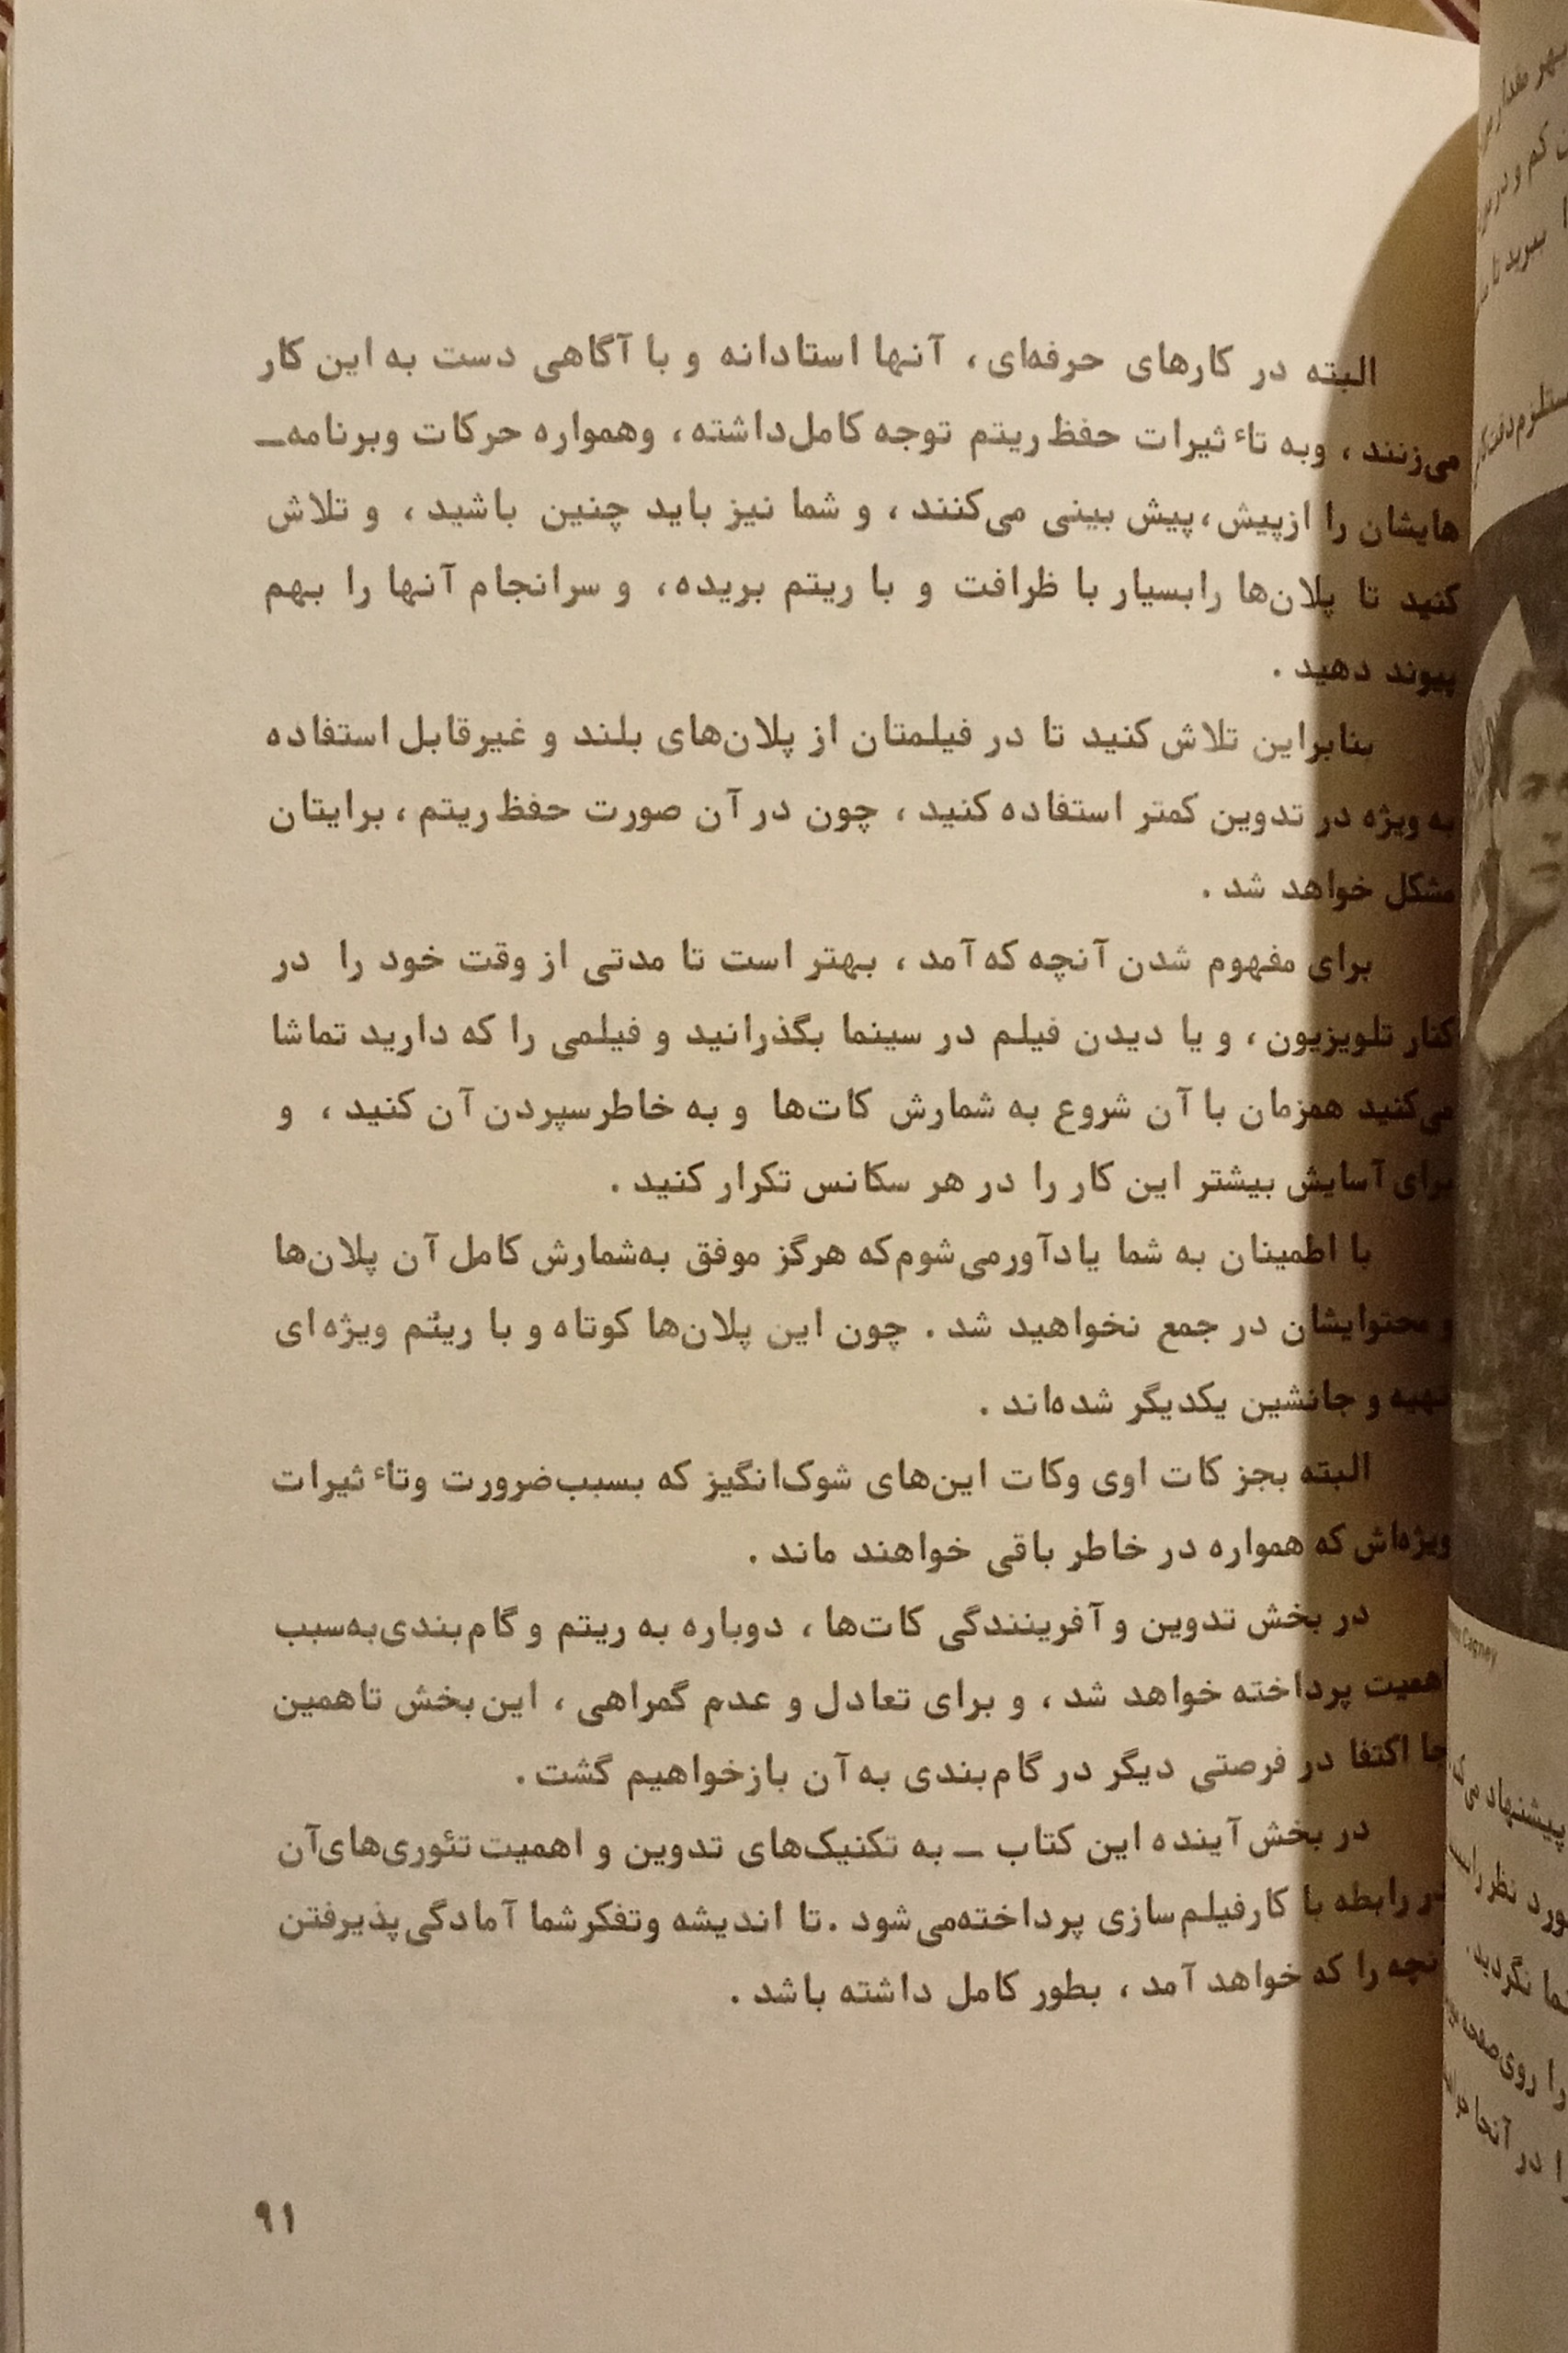 البته در کارهای حرفه‌ای، آنها استادانه و با آگاهی دست به این کار
می‌زنند، وبه تأثیرات حفظ ریتم توجه کامل داشته، وهمواره حرکات وبرنامه‌ـ
هایشان را ازپیش، پیش بینی می‌کنند، و شما نیز باید چنین باشید، و تلاش
کنید تا پلان‌ها رابسیار با ظرافت و با ریتم بریده، و سرانجام آنها را بهم
پیوند دهید.
بنابراین تلاش کنید تا در فیلمتان از پلان‌های بلند و غیرقابل استفاده
به ویژه در تدوین کمتر استفاده کنید، چون در آن صورت حفظ ریتم، برایتان
مشکل خواهد شد.
برای مفهوم شدن آنچه که آمد، بهتر است تا مدتی از وقت خود را در
کنار تلویزیون، و یا دیدن فیلم در سینما بگذرانید و فیلمی را که دارید تماشا
می‌کنید همزمان با آن شروع به شمارش کات‌ها و به خاطرسپردن آن کنید، و
برای آسایش بیشتر این کار را در هر سکانس تکرار کنید.
با اطمینان به شما یادآورمی‌شوم که هرگز موفق به‌شمارش کامل آن پلان‌ها
و محتوایشان در جمع نخواهید شد. چون این پلان‌ها کوتاه و با ریتم ویژه‌ای
تهیه و جانشین یکدیگر شده‌اند.
البته بجز کات اوی وکات این‌های شوک‌انگیز که بسبب ضرورت وتأثیرات
ویژه‌اش که همواره در خاطر باقی خواهند ماند.
در بخش تدوین و آفرینندگی کات‌ها، دوباره به ریتم و گام‌بندی به‌سبب
اهمیت پرداخته خواهد شد، و برای تعادل و عدم گمراهی، این بخش تاهمین
جا اکتفا در فرصتی دیگر در گام‌بندی به آن بازخواهیم گشت.
در بخش آینده این کتاب ـ به تکنیک‌های تدوین و اهمیت تئوری‌های آن
در رابطه با کارفیلم‌سازی پرداخته‌می‌شود. تا اندیشه وتفکرشما آمادگی پذیرفتن
آنچه را که خواهد آمد، بطور کامل داشته باشد.
۹۱
Cagney
پیشنهاد